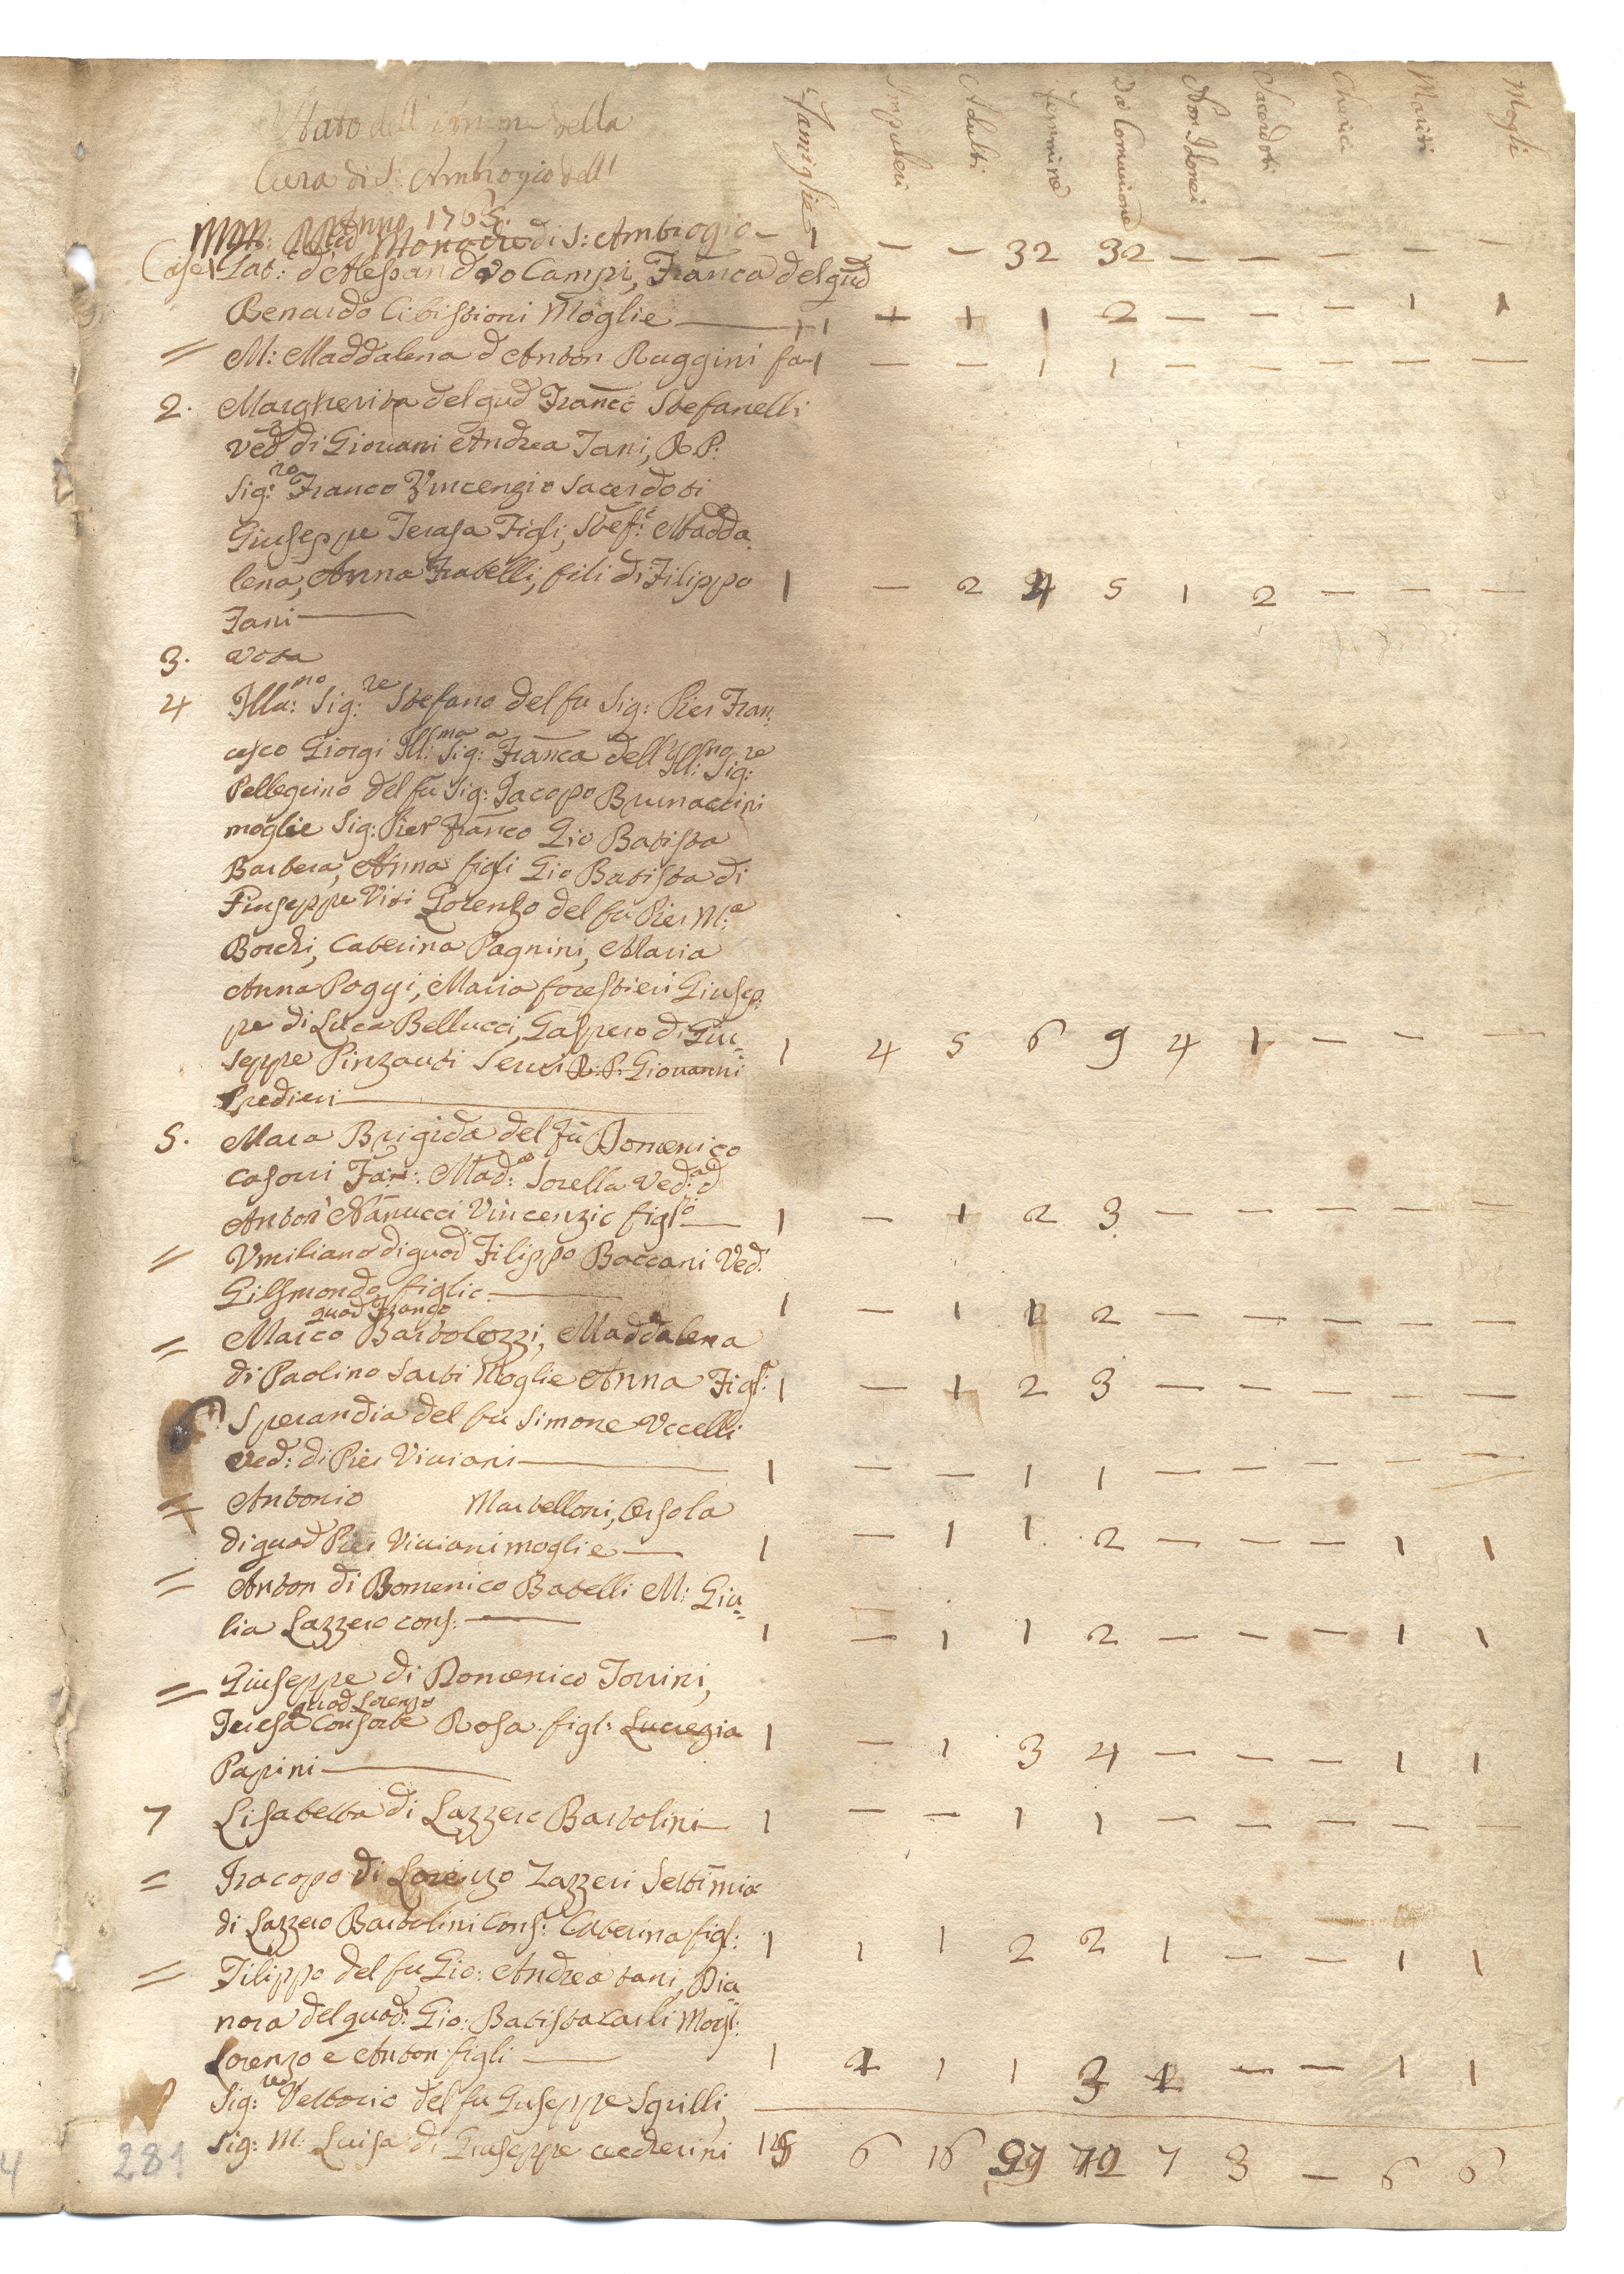 Stato dell' Anime della
Cura di S: Ambrogio dell'
Anno 1765.
Famiglie Impuberi Adulti Femmine Da Comunione Non Idonei Sacerdoti Cherici Mariti Mogli
Mon: Monache di S: Ambrogio — 1 — — 32 32 — — — — —
Case 1 Gat: d'Alessandro Campi, Franca del qud
Benardo Cibissioni Moglie — 1 1 1 1 2 — — — 1 1
= M: Maddalena d Anton Ruggini fa 1 — — 1 1 — — — — —
2. Margherita del qud Franco Stefanelli
ved di Giovani Andrea Tani, R P:
Sig:re Franco Vincenzio Sacerdoti
Giuseppe Teresa Figli, Stef: Madda
lena, Anna Fratelli, fili di Filippo
Tani — 1 — 2 4 5 1 2 — — —
3. vota
4 Illu:mo Sig:re Stefano del fu Sig: Pier Fran,
cesco Giorgi Ill:ma Sig:a Franca dell' Ill:mo Sig:re
Pellegrino del fu Sig: Jacopo Brunaccini
moglie Sig: Pier Franco Gio Batista
Barbera, Anna figli Gio Batista di
Giuseppe Viti Lorenzo del fu Pier M:a
Borchi, Caterina Pagnini, Maria
Anna Poggi, Maria forestieri Giusep:
pe di Luca Bellucci, Gaspero di Giu=
seppe Pinzauti Servi R. P. Giovanni
Spedieri — 1 4 5 6 9 4 1 — — —
5. Mara Brigida del fu Domenico
Casoni Fan: Mad:a Sorella Ved: d
Anton Nanucci Vincenzio figlo — 1 — 1 2 3 — — — — —
= Umiliana di quod Filippo Baccani Ved:
Gilsmondo figlio — 1 — 1 1 2 — — — — —
quod Franco
= Marco Bartolozzi, Maddalena
di Paolino Sarti Moglie Anna Figl: 1 — 1 2 3 — — — — —
6 Sperandia del fu Simone Uccelli
ved: di Pier Viviani — 1 — — 1 1 — — — — —
= Antonio Martelloni, Orsola
di quod Pier Viviani moglie — 1 — 1 1 2 — — — 1 1
= Anton di Domenico Batelli M: Giu=
lia Lazzero cons: — 1 — 1 1 2 — — — 1 1
= Giuseppe di Domenico Torrini,
quod Lorenzo
Teresa Consorte Rosa figl: Lucrezia
Papini — 1 — 1 3 4 — — — 1 1
7 Lisabetta di Lazzero Bartolini — 1 — — 1 1 — — — — —
= Jacopo di Lorenzo Lazzeri Settimia
di Lazzero Bartolini Cons: Caterina figl: 1 1 1 2 2 1 — — 1 1
= Filippo del fu Gio: Andrea tani, Dia=
nora del quod: Gio: Batista Carli Mogl:
Lorenzo e Anton figli — 1 1 1 1 3 1 — — 1 1
Sig:re Vettorio del fu Guseppe Sgrilli,
Sig: M: Luisa di Giuseppe 6 16 7 3 — 6 6
281